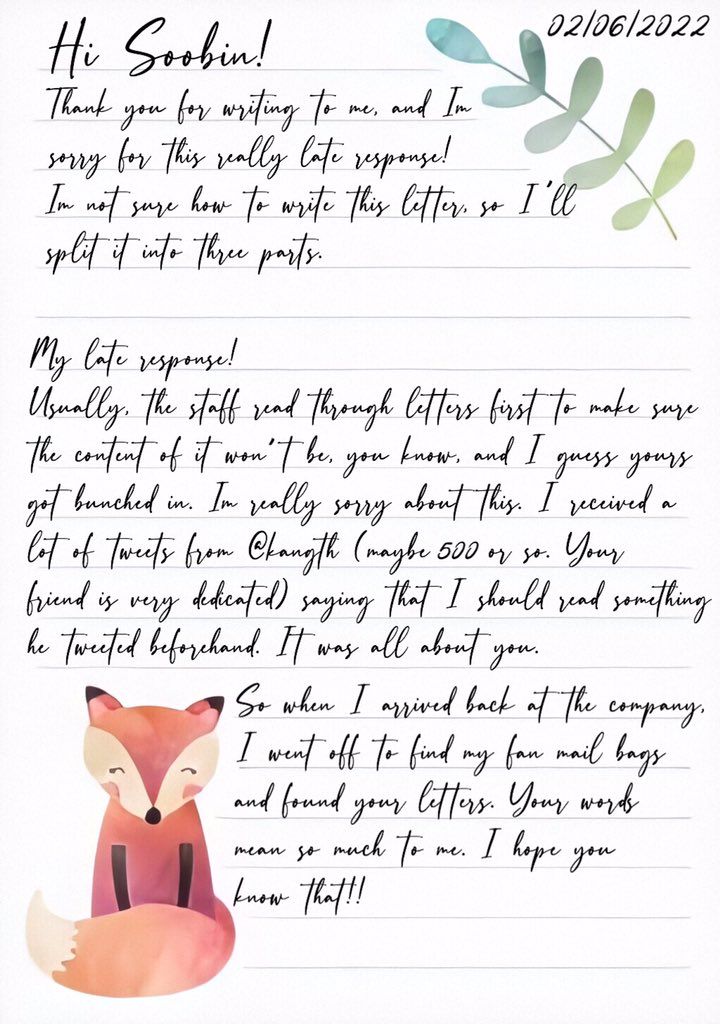 02/06/2022
Hi Soobin!
Thank you for writing to me, and Im
sorry for this really late response!
Im not sure how to write this letter, so I'll
split it into three parts.
My late response!
Usually, the staff read through letters first to make sure
the content of it won't be, you know, and I guess yours
got bunched in. Im really sorry about this. I received a
lot of tweets from @kangth (maybe 500 or so. Your
friend is very dedicated) saying that I should read something
he tweeted beforehand. It was all about you.
So when I arrived back at the company,
I went off to find my fan mail bags
and found your letters. Your words
mean so much to me. I hope you
know that!!